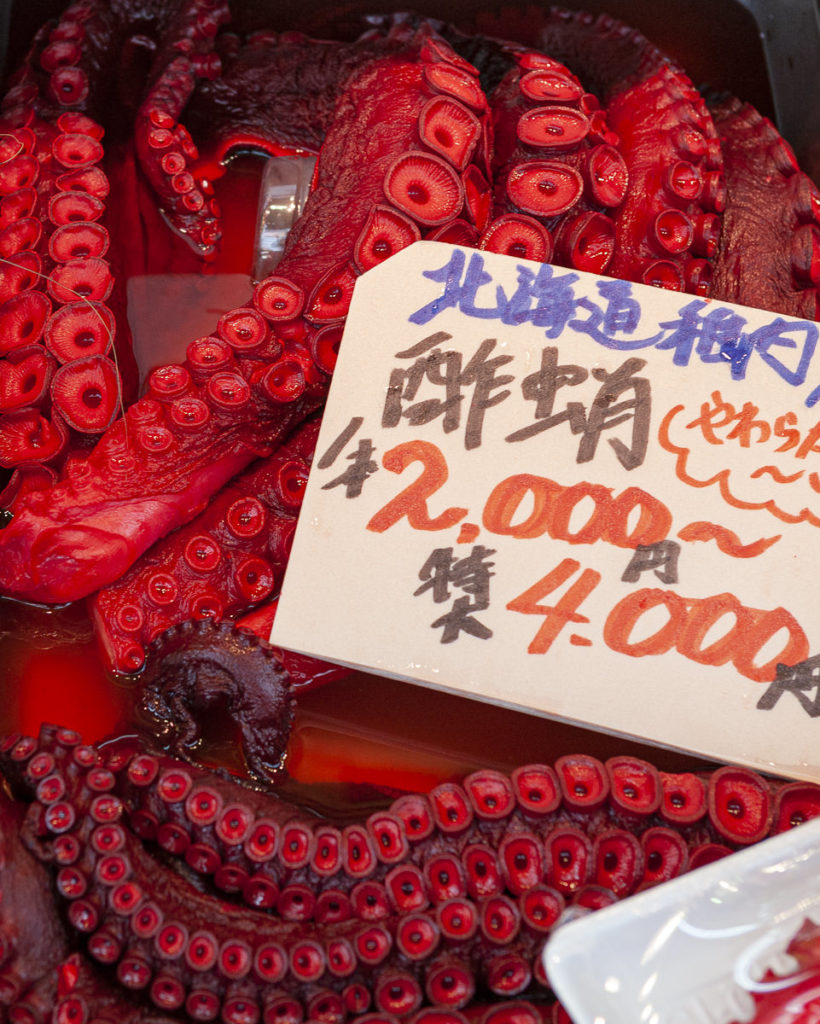 北海道稚内
酢蛸
やわらか
1本2,000~
円
特大4.000
円